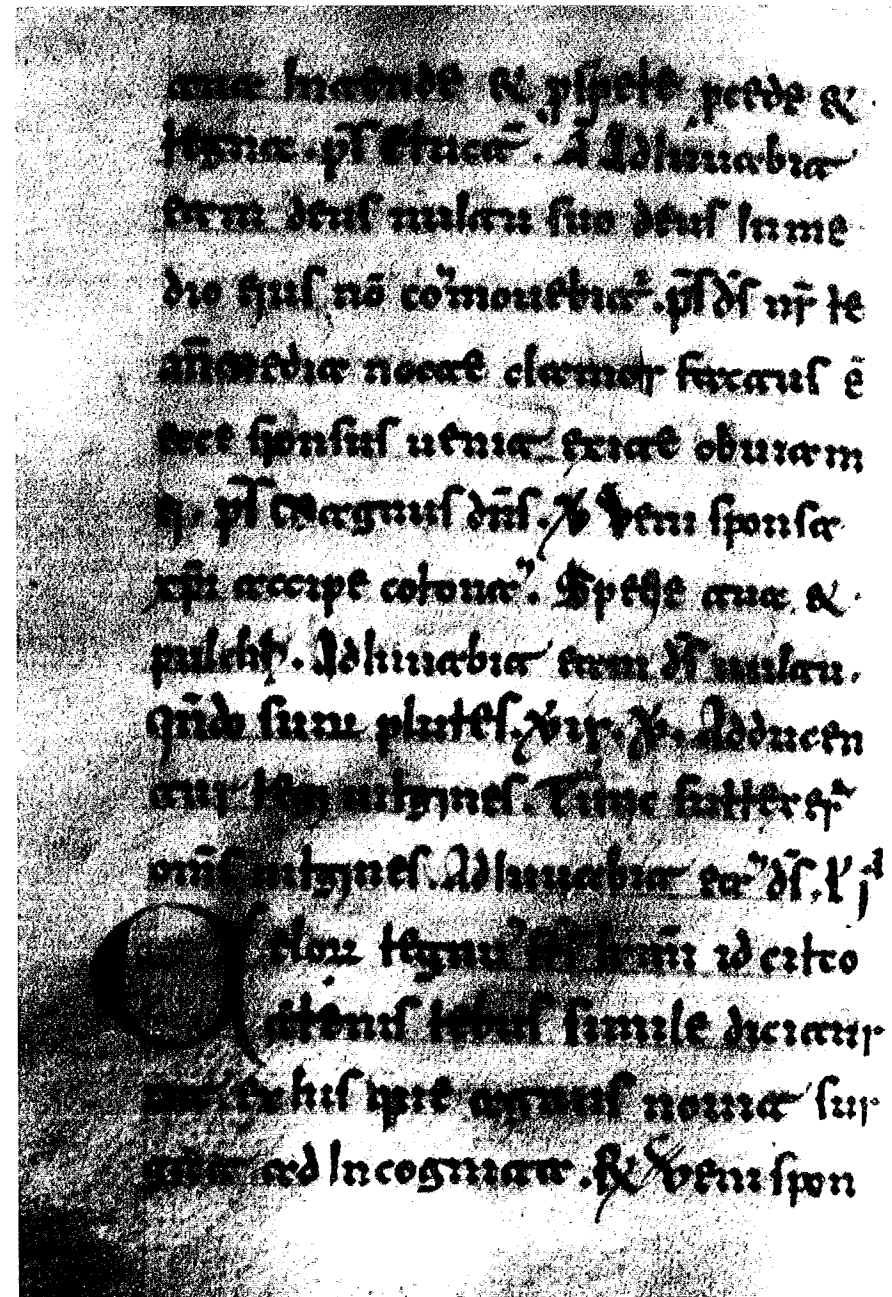 tua Intende & ꝓspere ꝓcede &
regna. p̄s Eructaū. A Adiuuabit
eam deus uultu suo deus In me
dio eius nō co᷒mouebit᷑. p̄s d̄s nr̄ re
an̄ Media nocte clamor factus ē
ecce sponsus uenit exite obuiam
ei. p̄s Magnus dn̄s. V Veni sponsa
xp̄i accipe corona. Specie tua &
pulchr. Adiuuabit eam d̄s uultu.
qn̄do sunt plures. xii. V. Adducen
tur regi uirgines. Tunc surrexer
om̄s uirgines. Adiuuabit ea d̄s. l i
Celorū regnū id circo
terrenis rebus simile dicitur
ut ex his que agnus nouit sur
gat ad Incognita. R Veni spon